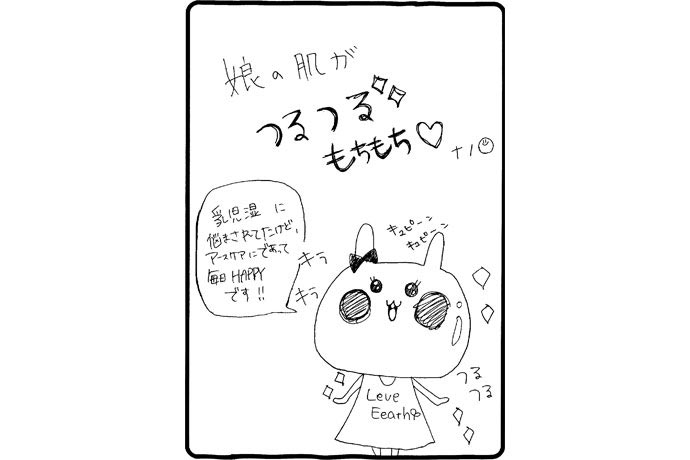 娘の肌が
つるつる
もちもち♡
ナノ
乳児湿 に
悩まされてたけど、
アースケアにであって
毎日 HAPPY
です!!
キラ
キラ
キュピーン
キュピーン
つる
つる
Leve
Eearth